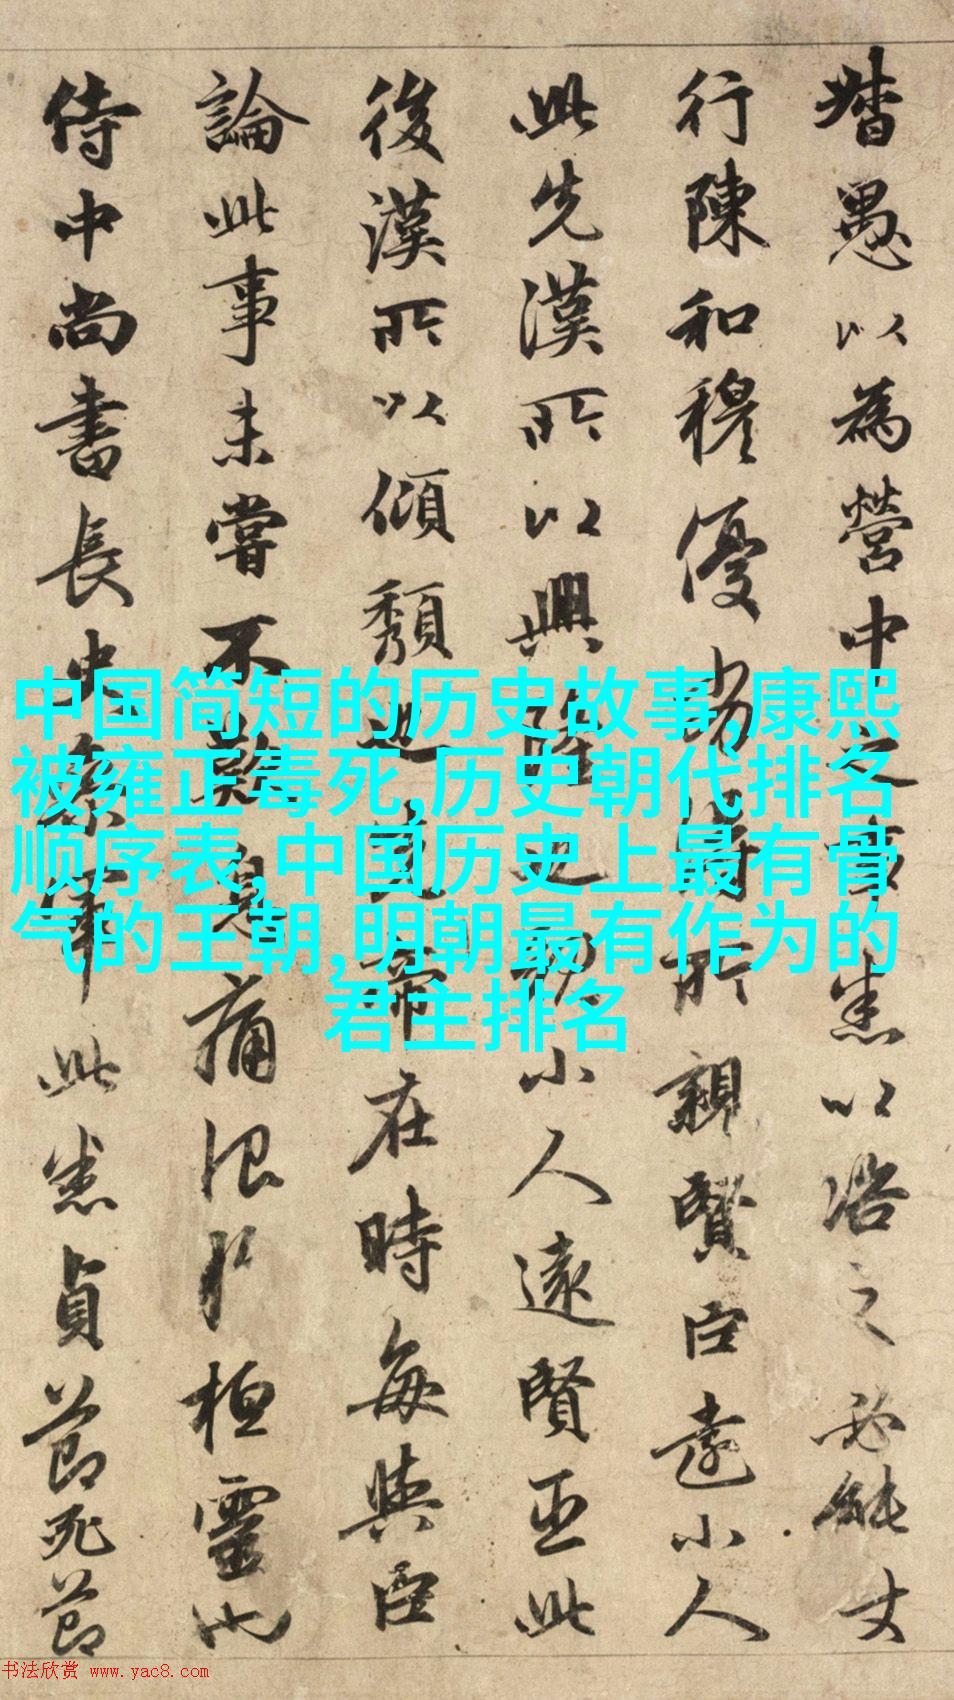 督愚以為營中之事悉以沿之必能丈
行陳和穆優劣得所親賢臣遠小人
此先漢所以興隆也親小人遠賢臣此
後漢所以傾頹也先帝在時每與臣
論此事未嘗不歎息痛恨於桓靈也
侍中尚書長史參軍此悉貞節死節
中国简短的历史故事,康熙
被雍正毒死,历史朝代排名
顺序表,中国历史上最有骨
气的王朝,明朝最有作为的
君主排名
书法欣赏 www.yac8.com